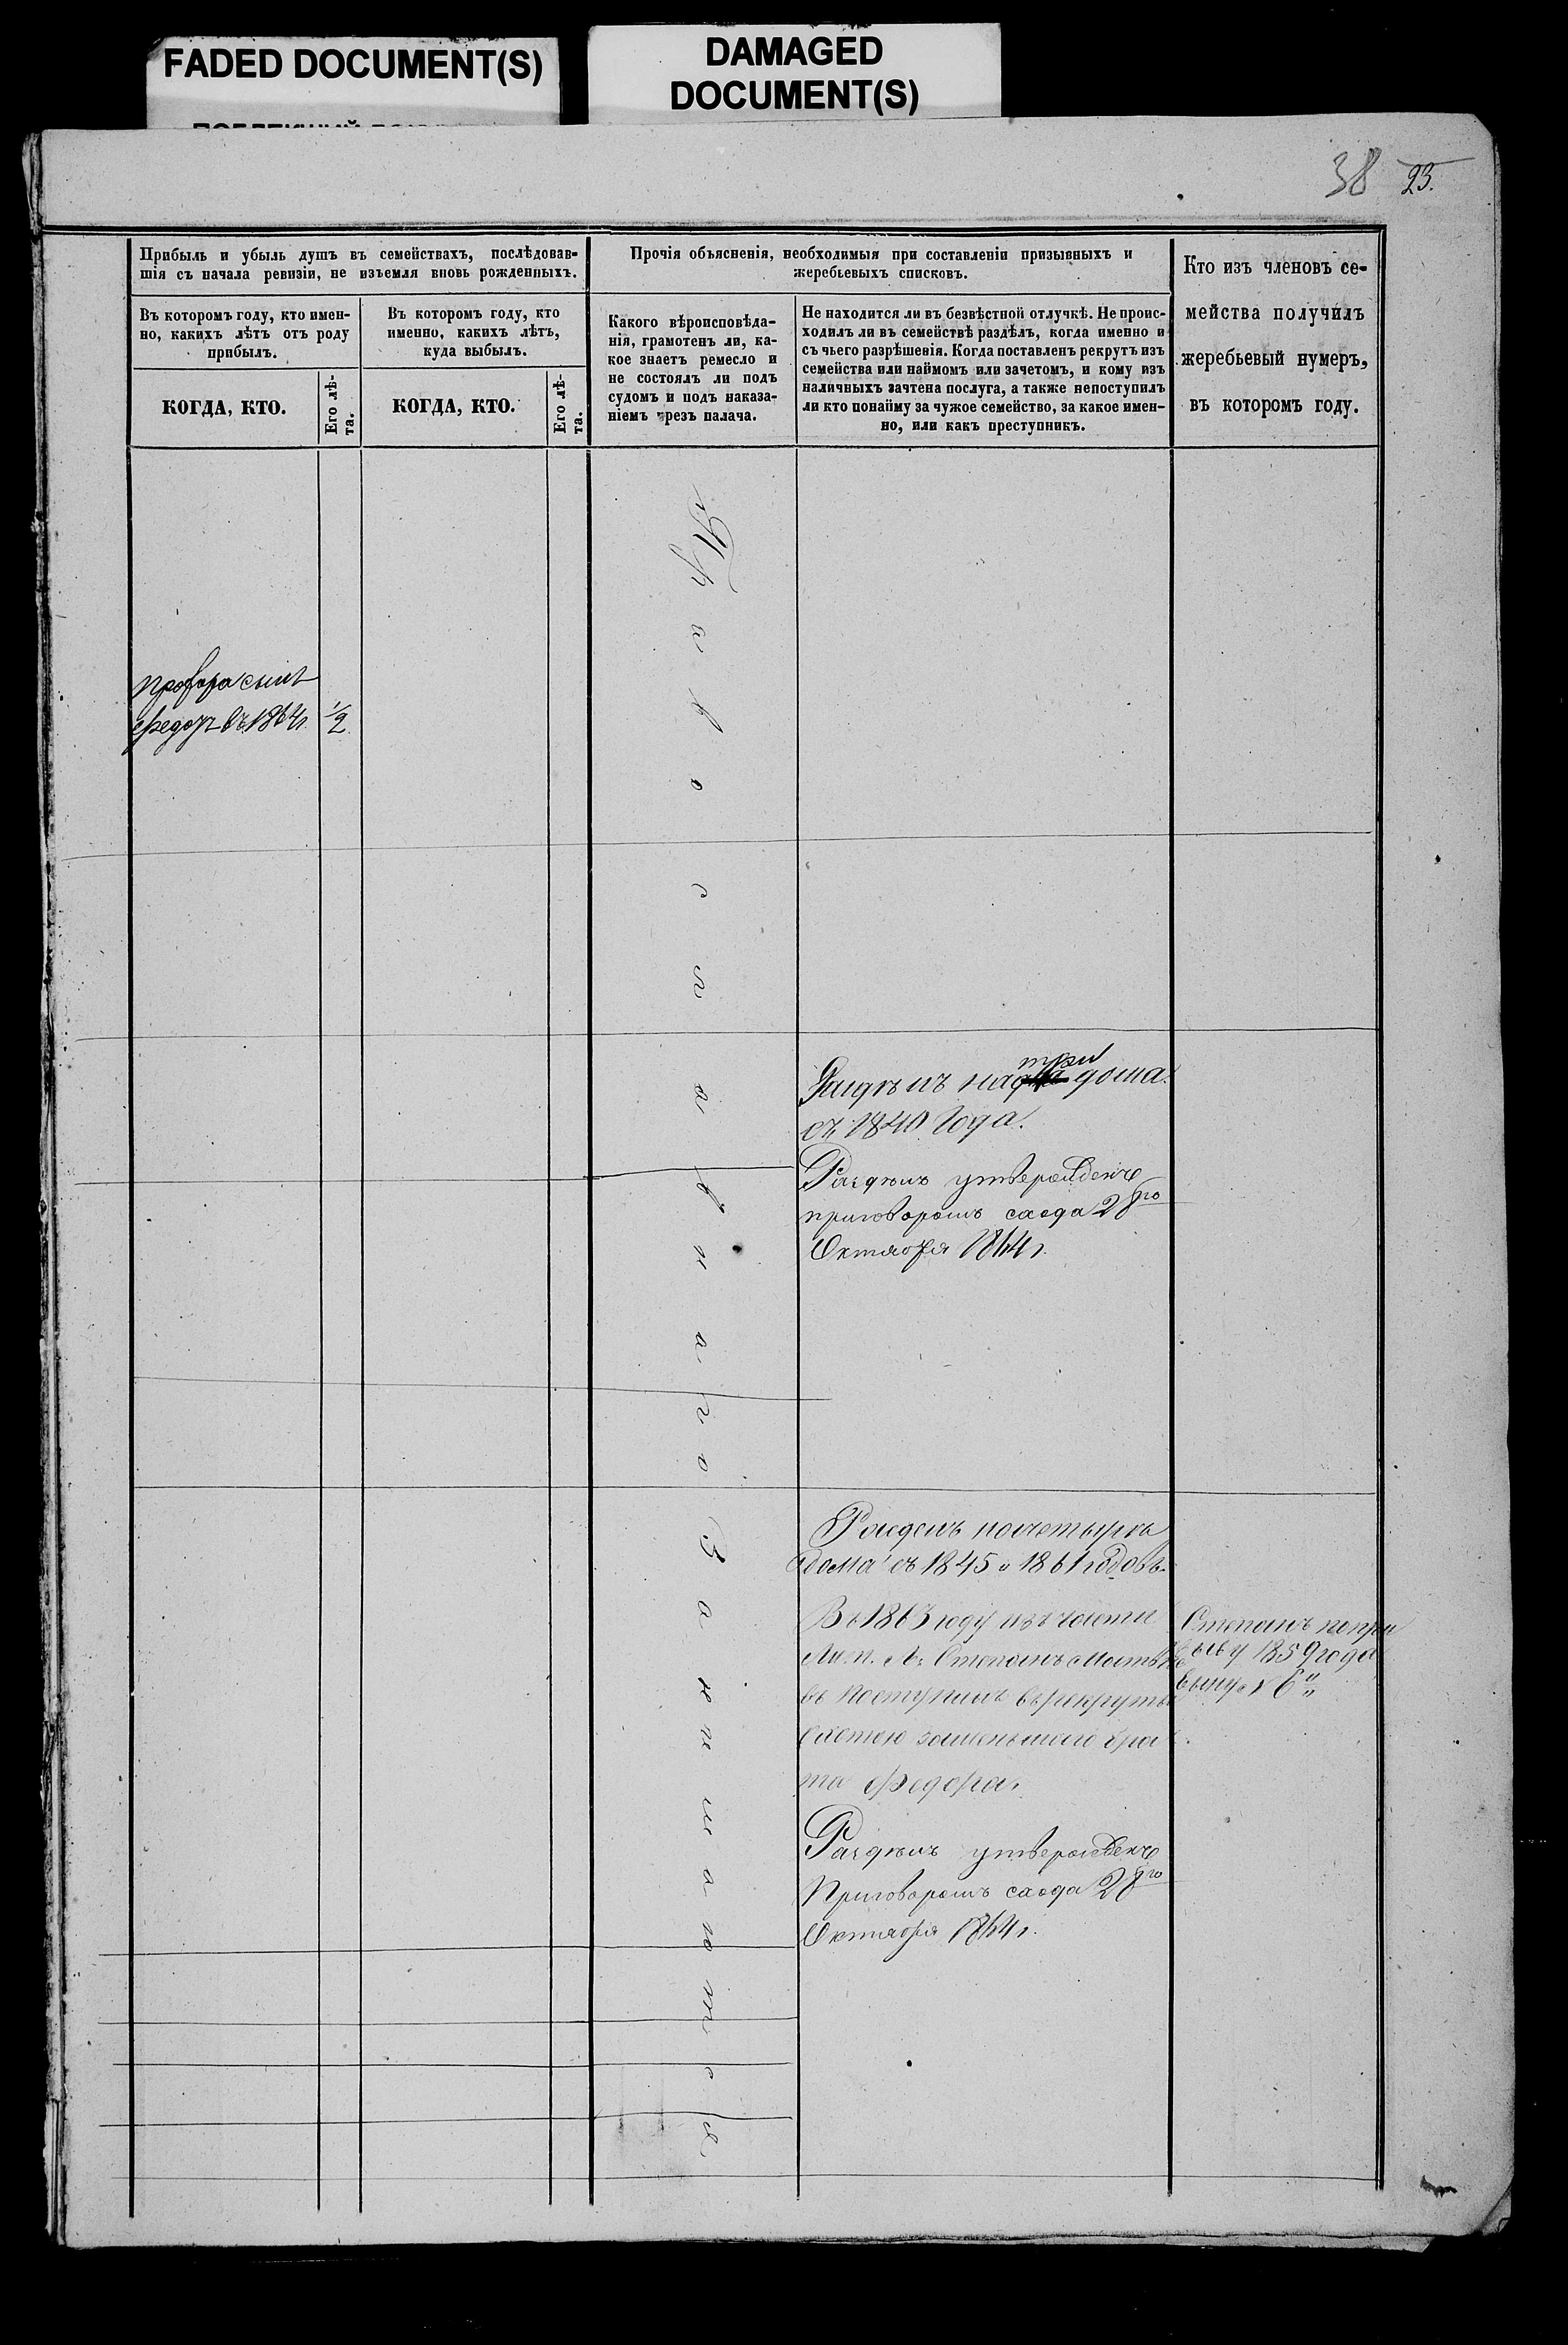 FADED DOCUMENT(S)
DAMAGED
DOCUMENT(S)
38 23.
Прибыль и убыль душъ въ семействахъ, послѣдовав-
шія съ начала ревизіи, не изъемля вновь рожденныхъ.
Въ которомъ году, кто имен-
но, какихъ лѣтъ отъ роду
прибылъ.
КОГДА, КТО.
Его лѣ-
та.
Въ которомъ году, кто
именно, какихъ лѣтъ,
куда выбылъ.
КОГДА, КТО.
Его лѣ-
та.
Прочія объясненія, необходимыя при составленіи призывныхъ и
жеребьевыхъ списковъ.
Какого вѣроисповѣда-
нія, грамотенъ ли, ка-
кое знаетъ ремесло и
не состоялъ ли подъ
судомъ и подъ наказа-
ніемъ чрезъ палача.
Не находится ли въ безвѣстной отлучкѣ. Не проис-
ходилъ ли въ семействѣ раздѣлъ, когда именно и
съ чьего разрѣшенія. Когда поставленъ рекрутъ изъ
семейства или наймомъ или зачетомъ, и кому изъ
наличныхъ зачтена послуга, а также непоступилъ
ли кто понайму за чужое семейство, за какое имен-
но, или какъ преступникъ.
Кто изъ членовъ се-
мейства получилъ
жеребьевый нумеръ,
въ которомъ году.
сынъ
въ 1864 г. 1/2
Православнаго
три
на дома
съ 1840 года.
Раздѣлъ утвержденъ
приговоромъ схода 28го
Октября 1864 г.
Разделъ начетыре
дома съ 1845 и 1861 годовъ.
Въ 1863 году изъ части
Степанъ
въ поступилъ въ рекруты
заменьшаго бра
та Федора.
Раздѣлъ утвержденъ
Приговоромъ схода 28го
Октября 1864 г.
Степанъ попри
зыву 1859 года
6"